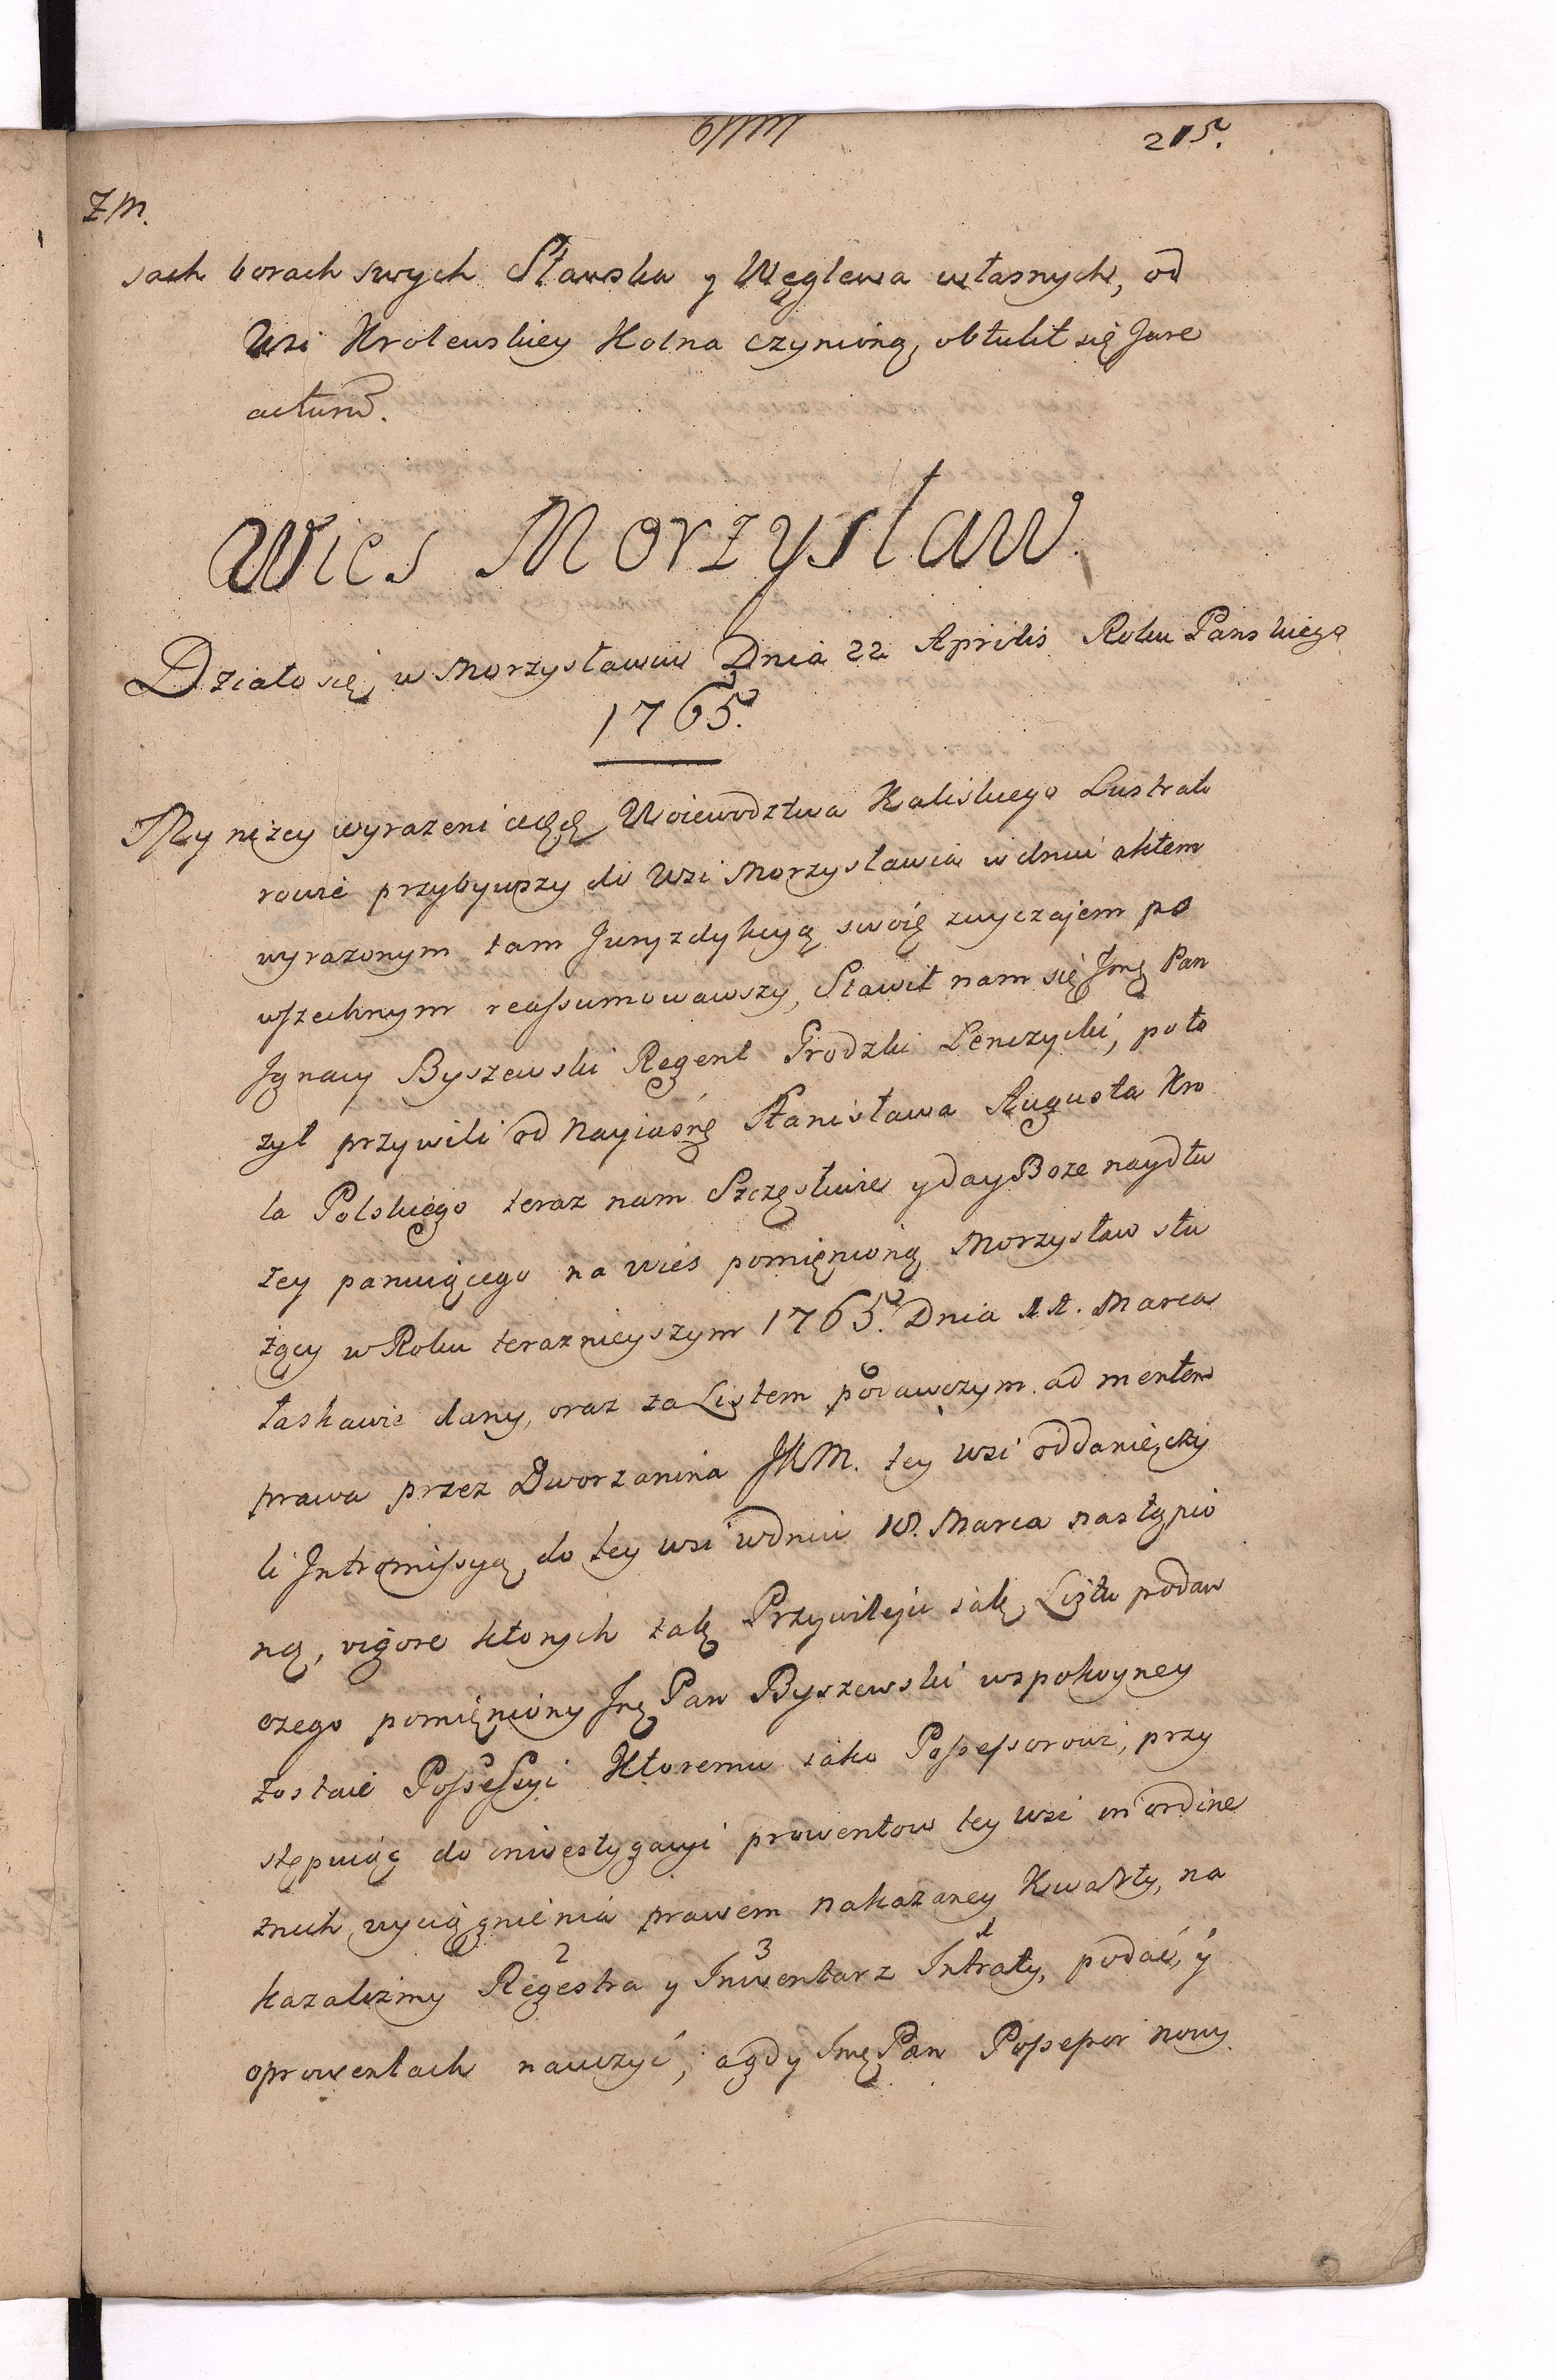 215.
ZM.
sach borach swych Sławska y Węglewa własnych, od
Wsi Krolewskiey Holna czynioną, obtulił się Jure
acturũ.
Wies Morzysław.
Działo się w Morzysławiu Dnia 22 Aprilis Roku Panskiego
1765.
My niżey wyrażeni Woiewodztwa Kaliskiego Lustrato
rowie przybywszy do Wsi Morzysławia w dniu aktem
wyrażonym tam Juryzdykcyą swoię zwyczajem po
wszechnym reassumowawszy, Stawił nam się Jmę Pan
Ignacy Byszewski Regent Grodzki Lenczycki, poło
zył przywili od Nayiasnę Stanisława Augusta Kro
la Polskiego teraz nam Szczęsliwie y day Boze naydłu
zey panuiącego na wies pomięnioną Morzysław słu
żący w Roku terazniejszym 1765. Dnia 11. Marca
łaskawie dany, oraz za Listem podawczym ad mentem
prawa przez Dworzanina JKM. tey wsi oddanie, czy
li Intromissyą do tey wsi w dniu 18. Marca nastąpio
ną, vigore ktorych takę Przywileju iakę Listu podaw
czego pomięniony Jmę Pan Byszewski w spokoyney
zostaie Possessyi Ktoremu iako Possessorowi, przy
stępuiąc do inwestygacyi prowentow tey wsi in ordine
znich wyciągnienia prawem nakazaney Kwarty, na
2 3 1
kazalizmy Regestra y Inwentarz Intraty, podać, y
oprowentach nauczyć, agdy Jmę Pan Possessor nowy